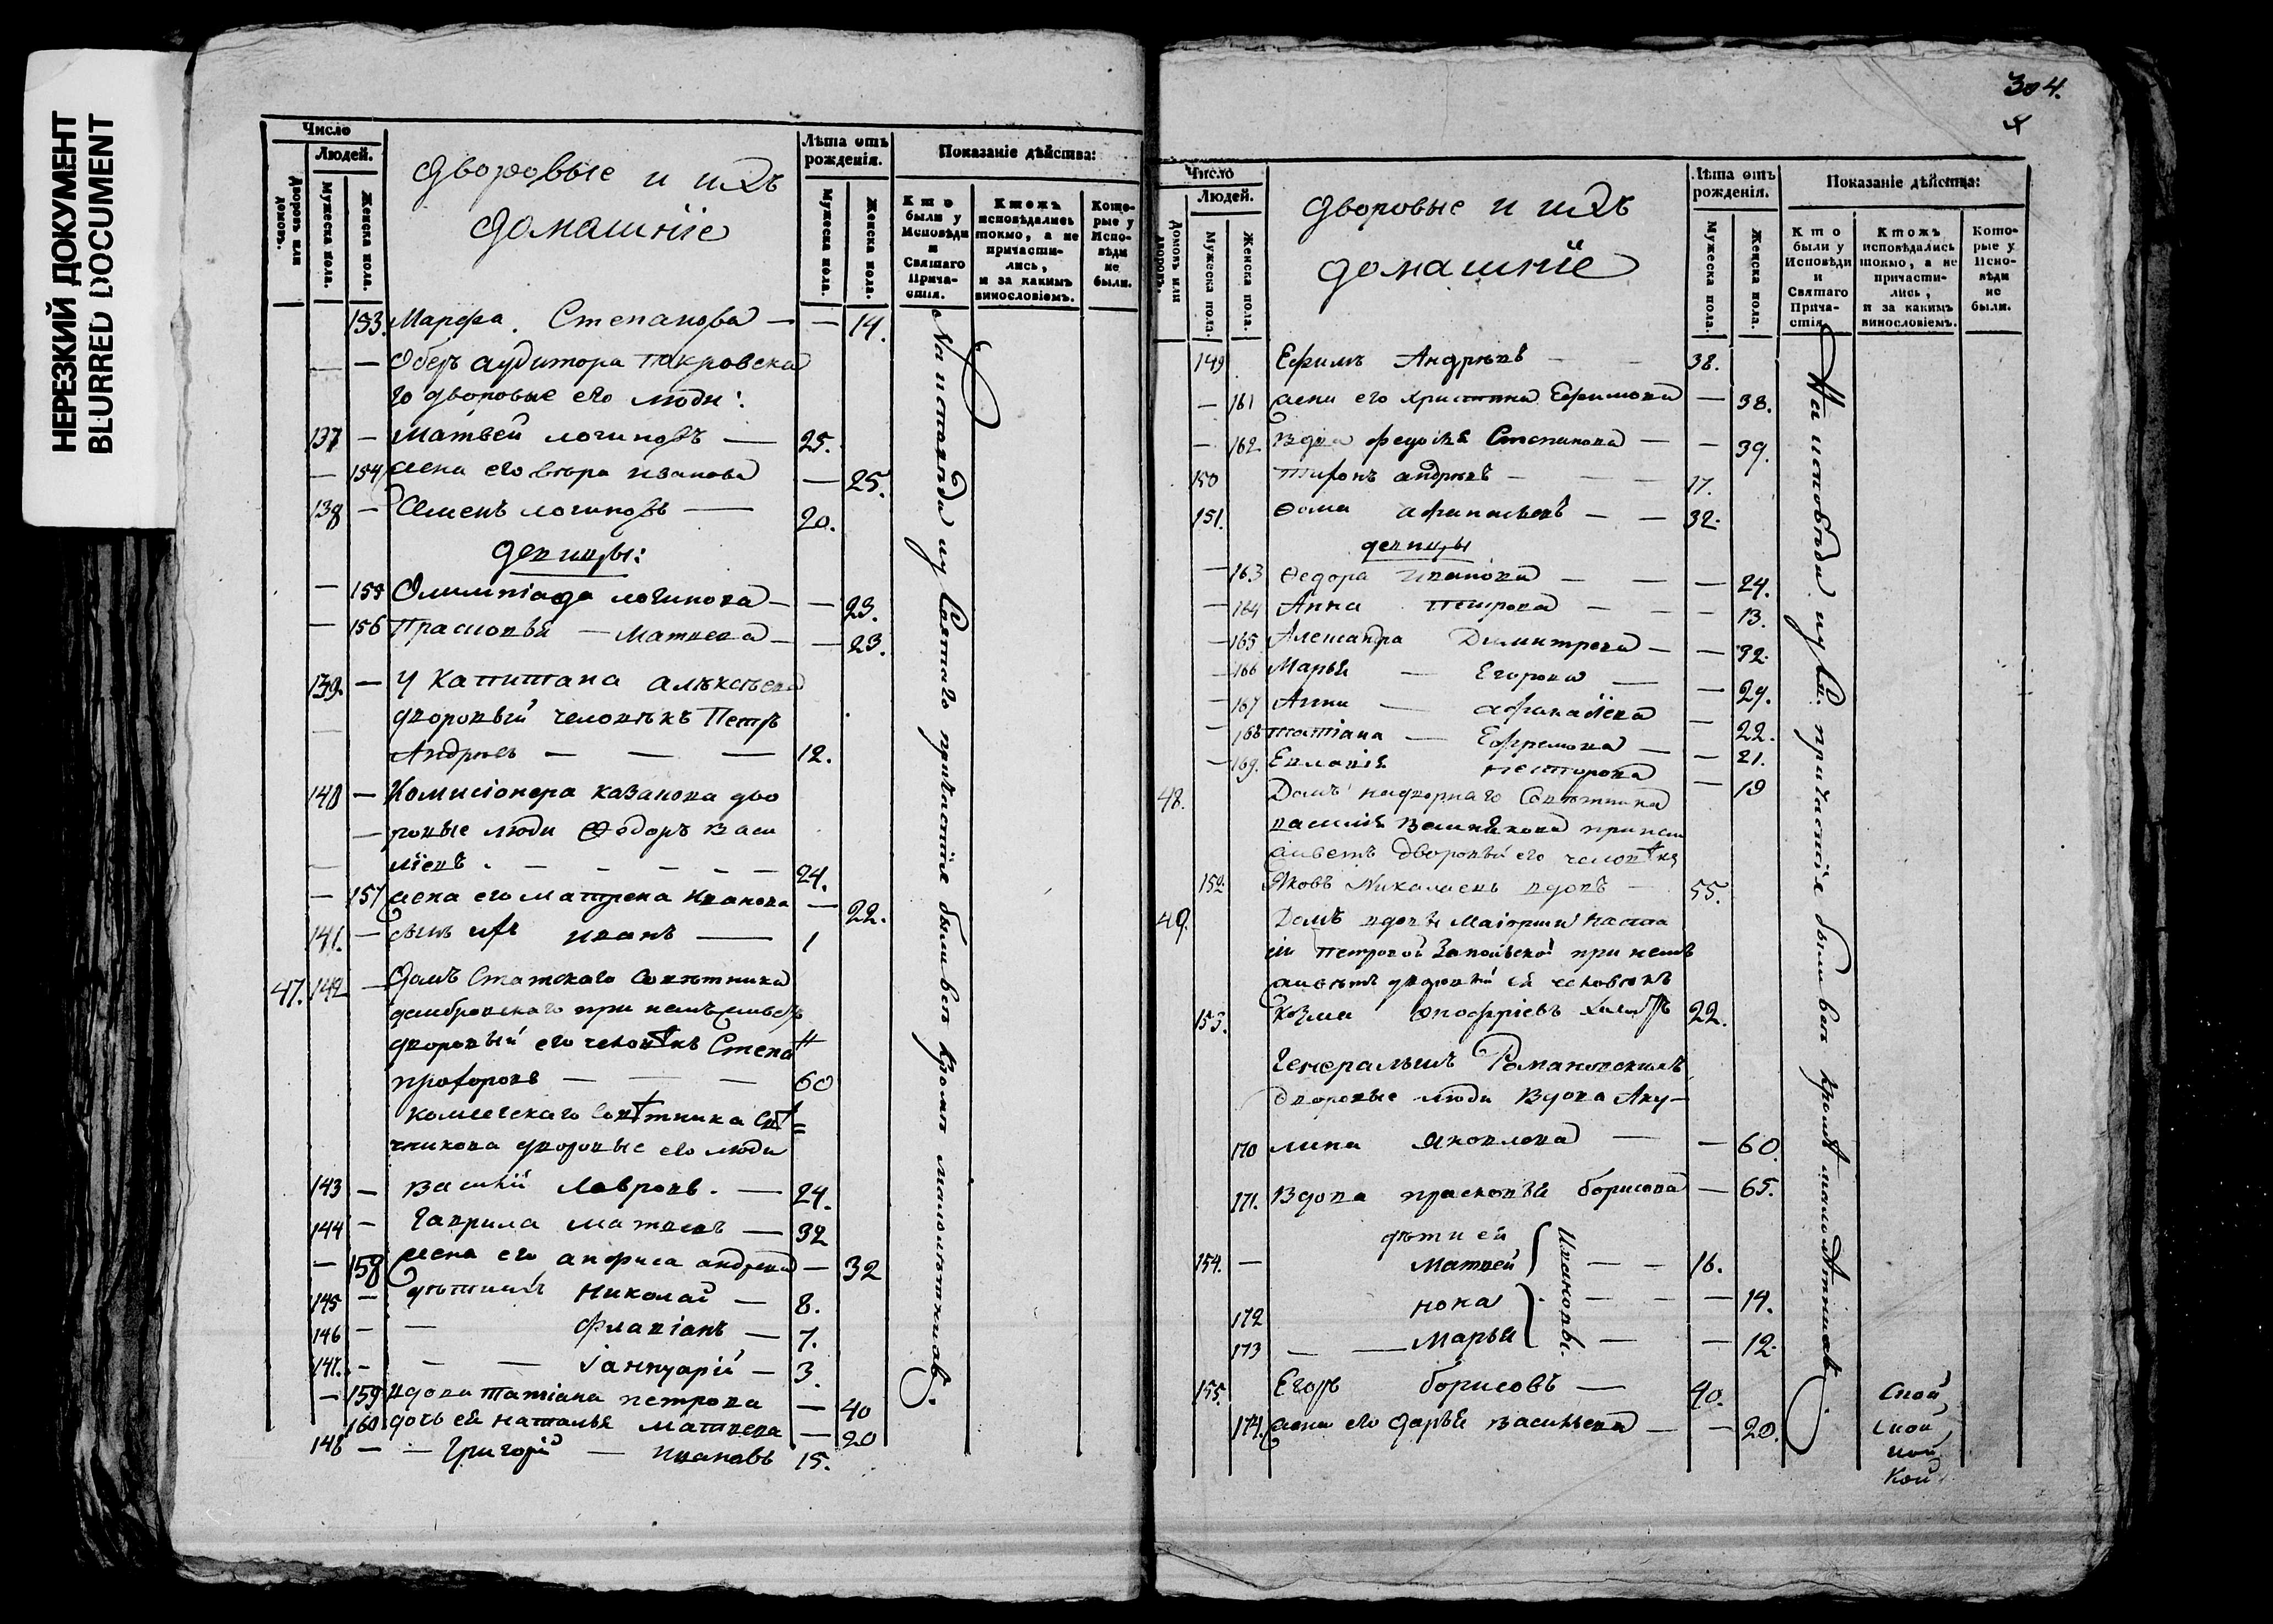 НЕРЕЗКИЙ ДОКУМЕНТ
BLURRED DOCUMENT
Число
Людей.
Дворовъ или домовъ.
Мужеска пола.
Женска пола.
Дворовые и ихъ
домашніе
Лѣта отъ рожденія.
Мужеска пола.
Женска пола.
Показаніе дѣйства:
Кто были у Исповѣди и Святаго Прича-стія.
Ктожъ исповѣдались токмо, а не причасти-лись, и за какимъ винословіемъ.
Кото-рые у Испо-вѣди не были.
153. Марфа Степанова — — 14.
— — Оберъ аудитора Пакровска
го дворовые его люди:
137 — Матвей логиновъ — 25.
— 154 жена его вѣра иванова — 25.
138 — Семенъ логиновъ — 20.
девицы:
— 155 Олимпіада логинова — — 23.
— 156 Прасковья — Матвева — — 23.
139. — У Капитана алѣксѣева
дворовый человѣкъ Петръ
Андрѣевъ — — — 12.
140 — Комисіонера казанова дво
— ровые люди Ѳедоръ Васи
ліевъ — — — — 24.
— 157 жена его матрена Иванова — 22.
141. — сынъ ихъ иванъ — 1
47. 142 — Домъ Статскаго Советника
домбровскаго при немъ живетъ
дворовый его человѣкъ Степанъ
прохоровъ — — — 60
колежскаго Совѣтника Свѣ=
чникова дворовые его люди
143 — василій Лавровъ — 24.
144 — Гаврила матвеевъ — 32
— 158 жена его анфиса андреева — 32
145 — дѣти ихъ Николай — 8.
146 — — флавіанъ — 7.
147. — — — Іаннуарій — 3.
— 159 вдова татіана петрова — 40
160 дочь ея наталья матвеева — 20
148 — — Григорій — ивановъ 15.
На исповѣди и у Святаго причастія были все кроме малолѣтнихъ.
304.
Число
Людей.
Домовъ или дворовъ.
Мужеска пола.
Женска пола.
дворовые и ихъ
домашніе
Лѣта отъ рожденія.
Мужеска пола.
Женска пола.
Показаніе дѣйства:
Кто были у Исповѣди и Святаго Прича-стія.
Ктожъ исповѣдались токмо, а не причасти-лись, и за какимъ винословіемъ.
Кото-рые у Испо-вѣди не были.
149 Ефимъ Андрѣевъ — — 38.
— 161 жена его христина Ефимова — 38.
— 162. вдова Степанова — — 39.
150 андрѣевъ — — — 17.
151. Ѳома афанасьевъ — — 32.
девицы
— 163 Ѳедора иванова — — — 24.
— 164 Анна петрова — — — 13.
— 165 Александра Димитрева — — 32.
— 166 Марья — Егорова — — 29.
— 167 Анна — афанасіева — 22.
— 168 татіана — Ефремова — — 21.
— 169. Евлавія несторова — 19
48. Домъ надворнаго Советника
василія при немъ
живетъ дворовый его человѣкъ
152. Яковъ Николаевъ вдовъ — 55.
49. Домъ вдовы Маіорши настас
іи Петровой при ней
живетъ дворовый ея человекъ
153. Козма оноφріевъ 22.
Генеральши Романовской
Дворовые люди Вдова Аку-
170 лина яковлева — — 60.
171. Вдова прасковья борисова — 65.
дѣти ея
154. — матвей — — 16.
172 нона — — — 14.
173 — — Марья — — 12.
Ивановы.
155. Егоръ борисовъ — 40.
174. жена его дарья васильева — — 20.
На исповѣди и у Св. причастія были все кромѣ малолѣтнихъ